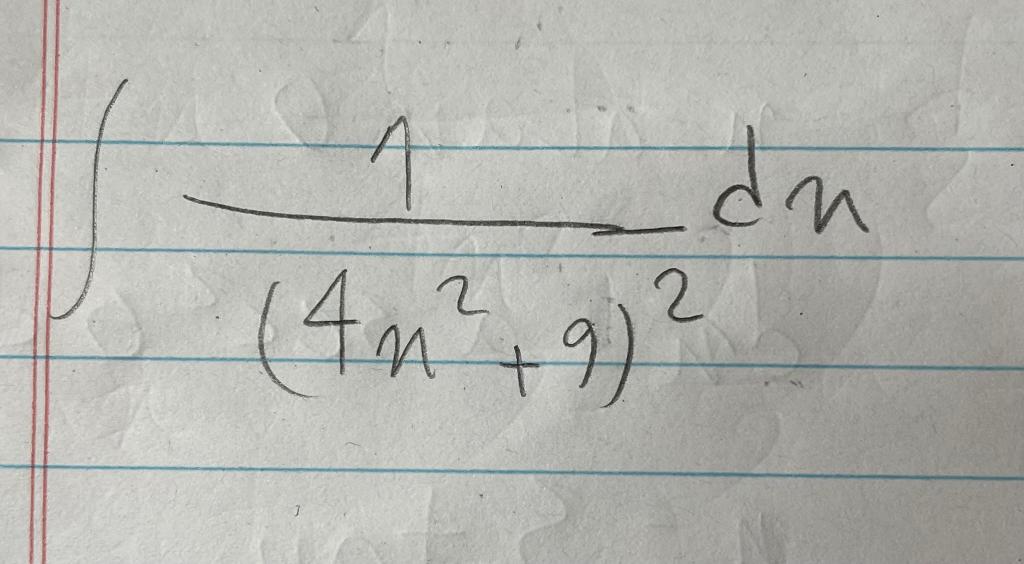 ∫ 1/(4x²+9)² dx